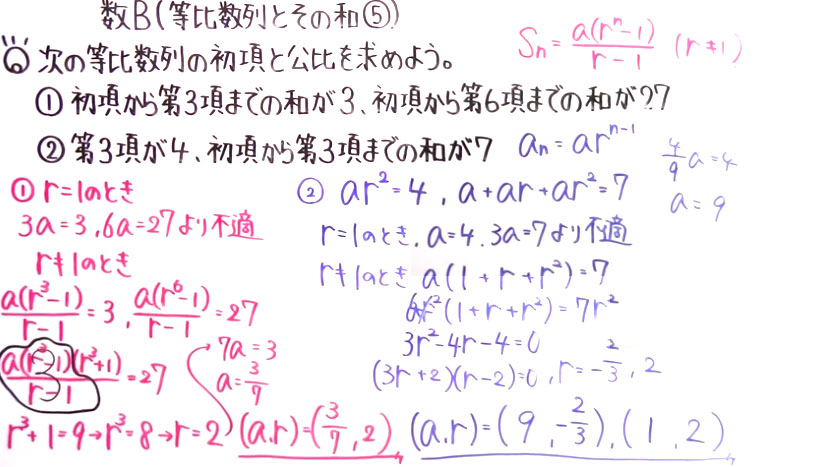 数B(等比数列とその和⑤)
Sn = a(rⁿ-1)/(r-1) (r≠1)
次の等比数列の初項と公比を求めよう。
① 初項から第3項までの和が3、初項から第6項までの和が27
② 第3項が4、初項から第3項までの和が7
an = arⁿ⁻¹
4/9 a = 4
a = 9
① r=1のとき
3a=3, 6a=27より不適
r≠1のとき
a(r³-1)/(r-1) = 3, a(r⁶-1)/(r-1) = 27
a(r³-1)(r³+1)/(r-1) = 27
r³+1=9→r³=8→r=2
7a=3
a=3/7
(a,r)=(3/7, 2)
② ar²=4, a+ar+ar²=7
r=1のとき, a=4, 3a=7より不適
r≠1のとき a(1+r+r²)=7
ar²(1+r+r²)=7r²
3r²-4r-4=0
(3r+2)(r-2)=0, r=-2/3, 2
(a,r)=(9, -2/3), (1, 2)